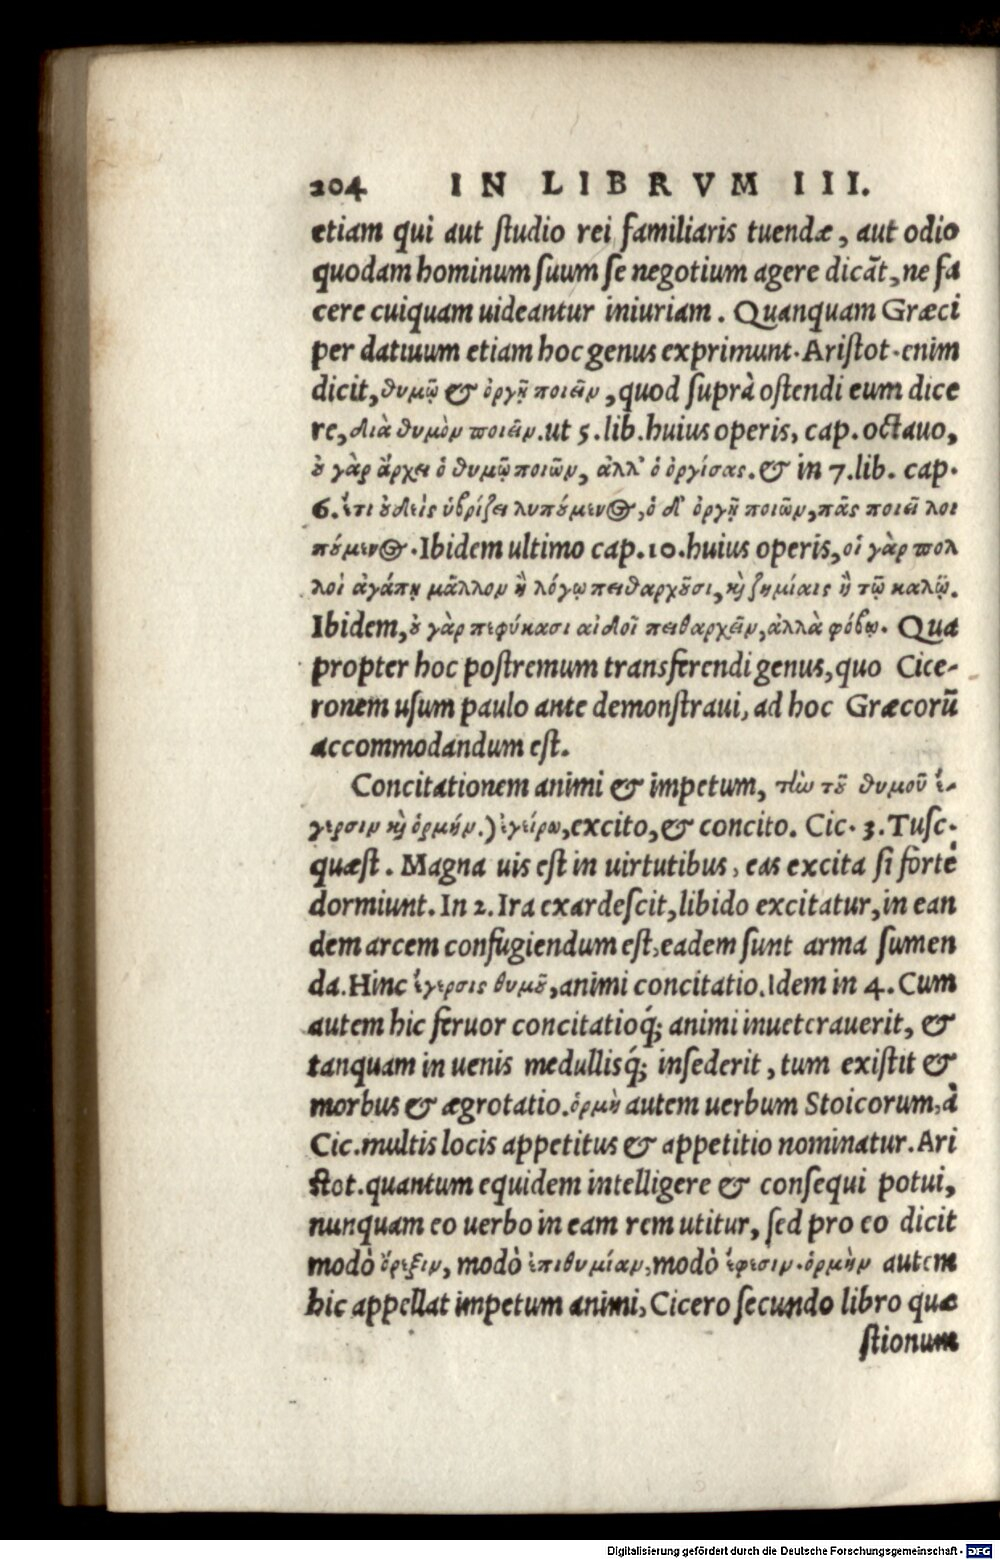 204 IN LIBRVM III.
etiam qui aut ſtudio rei familiaris tuendæ, aut odio
quodam hominum ſuum ſe negotium agere dicāt, ne fa
cere cuiquam uideantur iniuriam. Quanquam Græci
per datiuum etiam hoc genus exprimunt. Ariſtot. enim
dicit, θυμῷ & ὀργῇ ποιεῖν, quod ſuprà oſtendi eum dice
re, διὰ θυμὸν ποιεῖν. ut 5. lib. huius operis, cap. octauo,
ȣ̓ γὰρ ἄρχει ὁ θυμῷ ποιῶν, ἀλλ' ὁ ὀργίσας. & in 7. lib. cap.
6. ἔτι ȣ̓δεὶς ὑβρίζει λυπȣ́μεν⊙, ὁ δ' ὀργῇ ποιῶν, πᾶς ποιεῖ λοι
πȣ́μεν⊙. Ibidem ultimo cap. 10. huius operis, οἱ γὰρ πολ
λοὶ ἀγάπῃ μᾶλλον ἢ λόγῳ πειθαρχȣ͂σι, κỳ ζημίαις ἢ τῷ καλῷ.
Ibidem, ȣ̓ γὰρ πεφύκασι αἰδοῖ πειθαρχεῖν, ἀλλὰ φόβῳ. Qua
propter hoc poſtremum transferendi genus, quo Cice-
ronem uſum paulo ante demonſtraui, ad hoc Græcorū
accommodandum eſt.
Concitationem animi & impetum, τὴν τȣ͂ θυμοῦ ἔ-
γερσιν κỳ ὁρμήν.) ἐγείρω, excito, & concito. Cic. 3. Tuſc.
quæſt. Magna uis eſt in uirtutibus, eas excita ſi fortè
dormiunt. In 2. Ira exardeſcit, libido excitatur, in ean
dem arcem confugiendum eſt, eadem ſunt arma ſumen
da. Hinc ἔγερσις θυμȣ͂, animi concitatio. Idem in 4. Cum
autem hic feruor concitatioq́; animi inueterauerit, &
tanquam in uenis medullisq́; inſederit, tum exiſtit &
morbus & ægrotatio. ὁρμὴ autem uerbum Stoicorum, à
Cic. multis locis appetitus & appetitio nominatur. Ari
ſtot. quantum equidem intelligere & conſequi potui,
nunquam eo uerbo in eam rem utitur, ſed pro eo dicit
modò ὄρεξιν, modò ἐπιθυμίαν, modò ἔφεσιν. ὁρμὴν autem
hic appellat impetum animi, Cicero ſecundo libro quæ
ſtionum
Digitalisierung gefördert durch die Deutsche Forschungsgemeinschaft - DFG